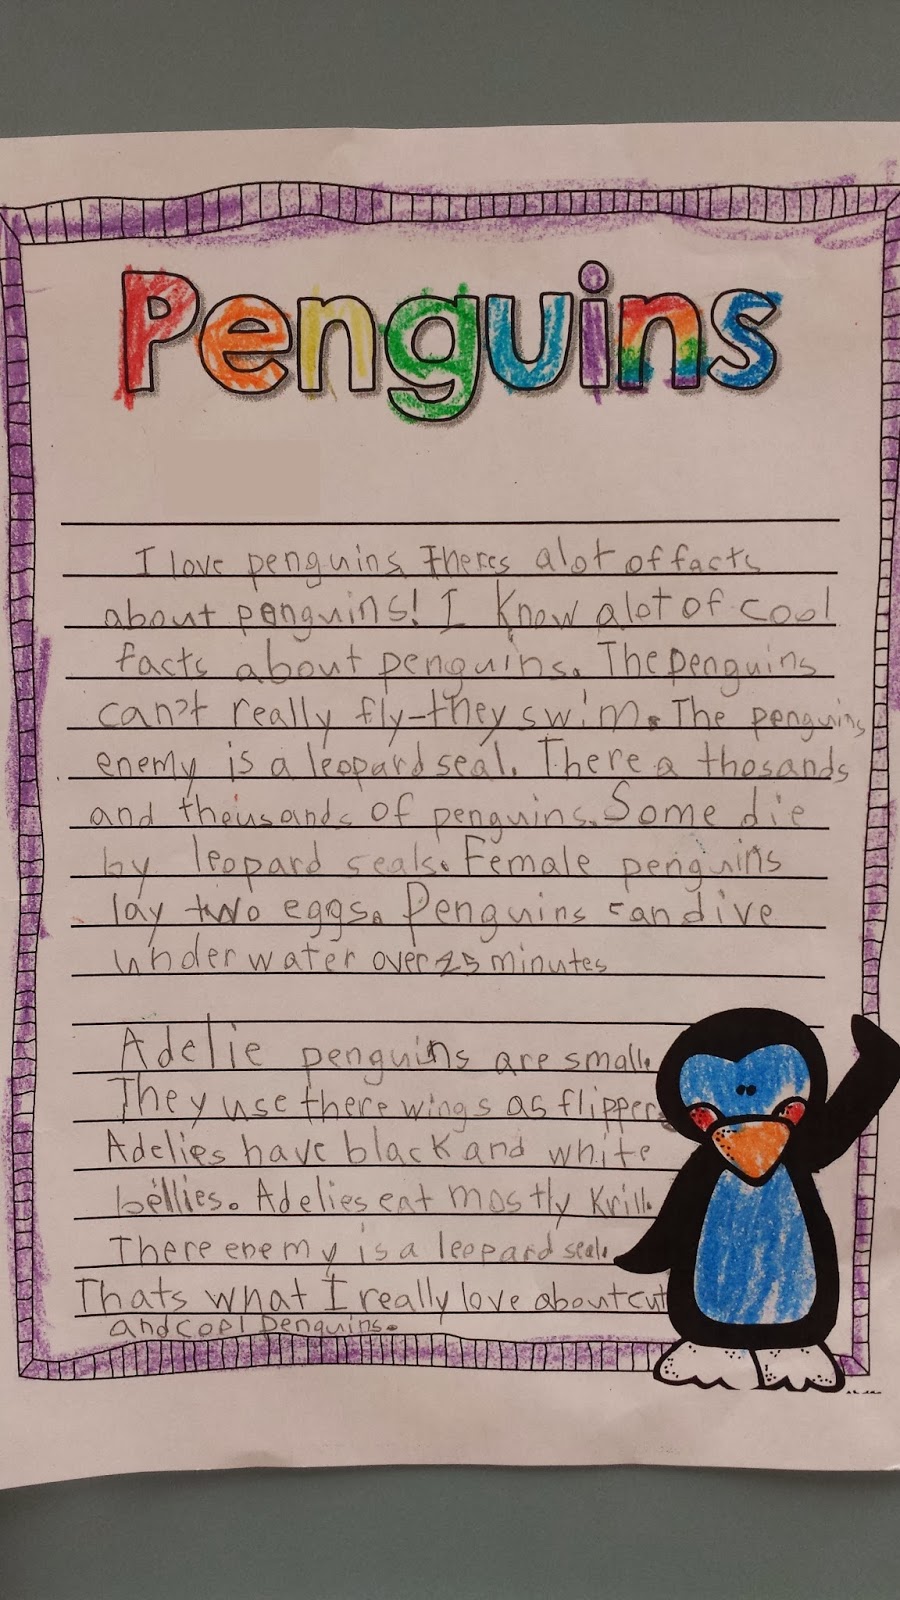 Penguins
I love penguins. Theres alot of facts
about penguins! I know alot of cool
facts about penguins. The penguins
can't really fly-they swim. The penguins
enemy is a leopard seal. There a thosands
and theusands of penguins. Some die
by leopard seals. Female penguins
lay two eggs. Penguins can dive
under water over 25 minutes
Adelie penguins are small.
They use there wings as flippers
Adelies have black and white
bellies. Adelies eat mostly krill.
There enemy is a leopard seal.
Thats what I really love about cut
and cool penguins.